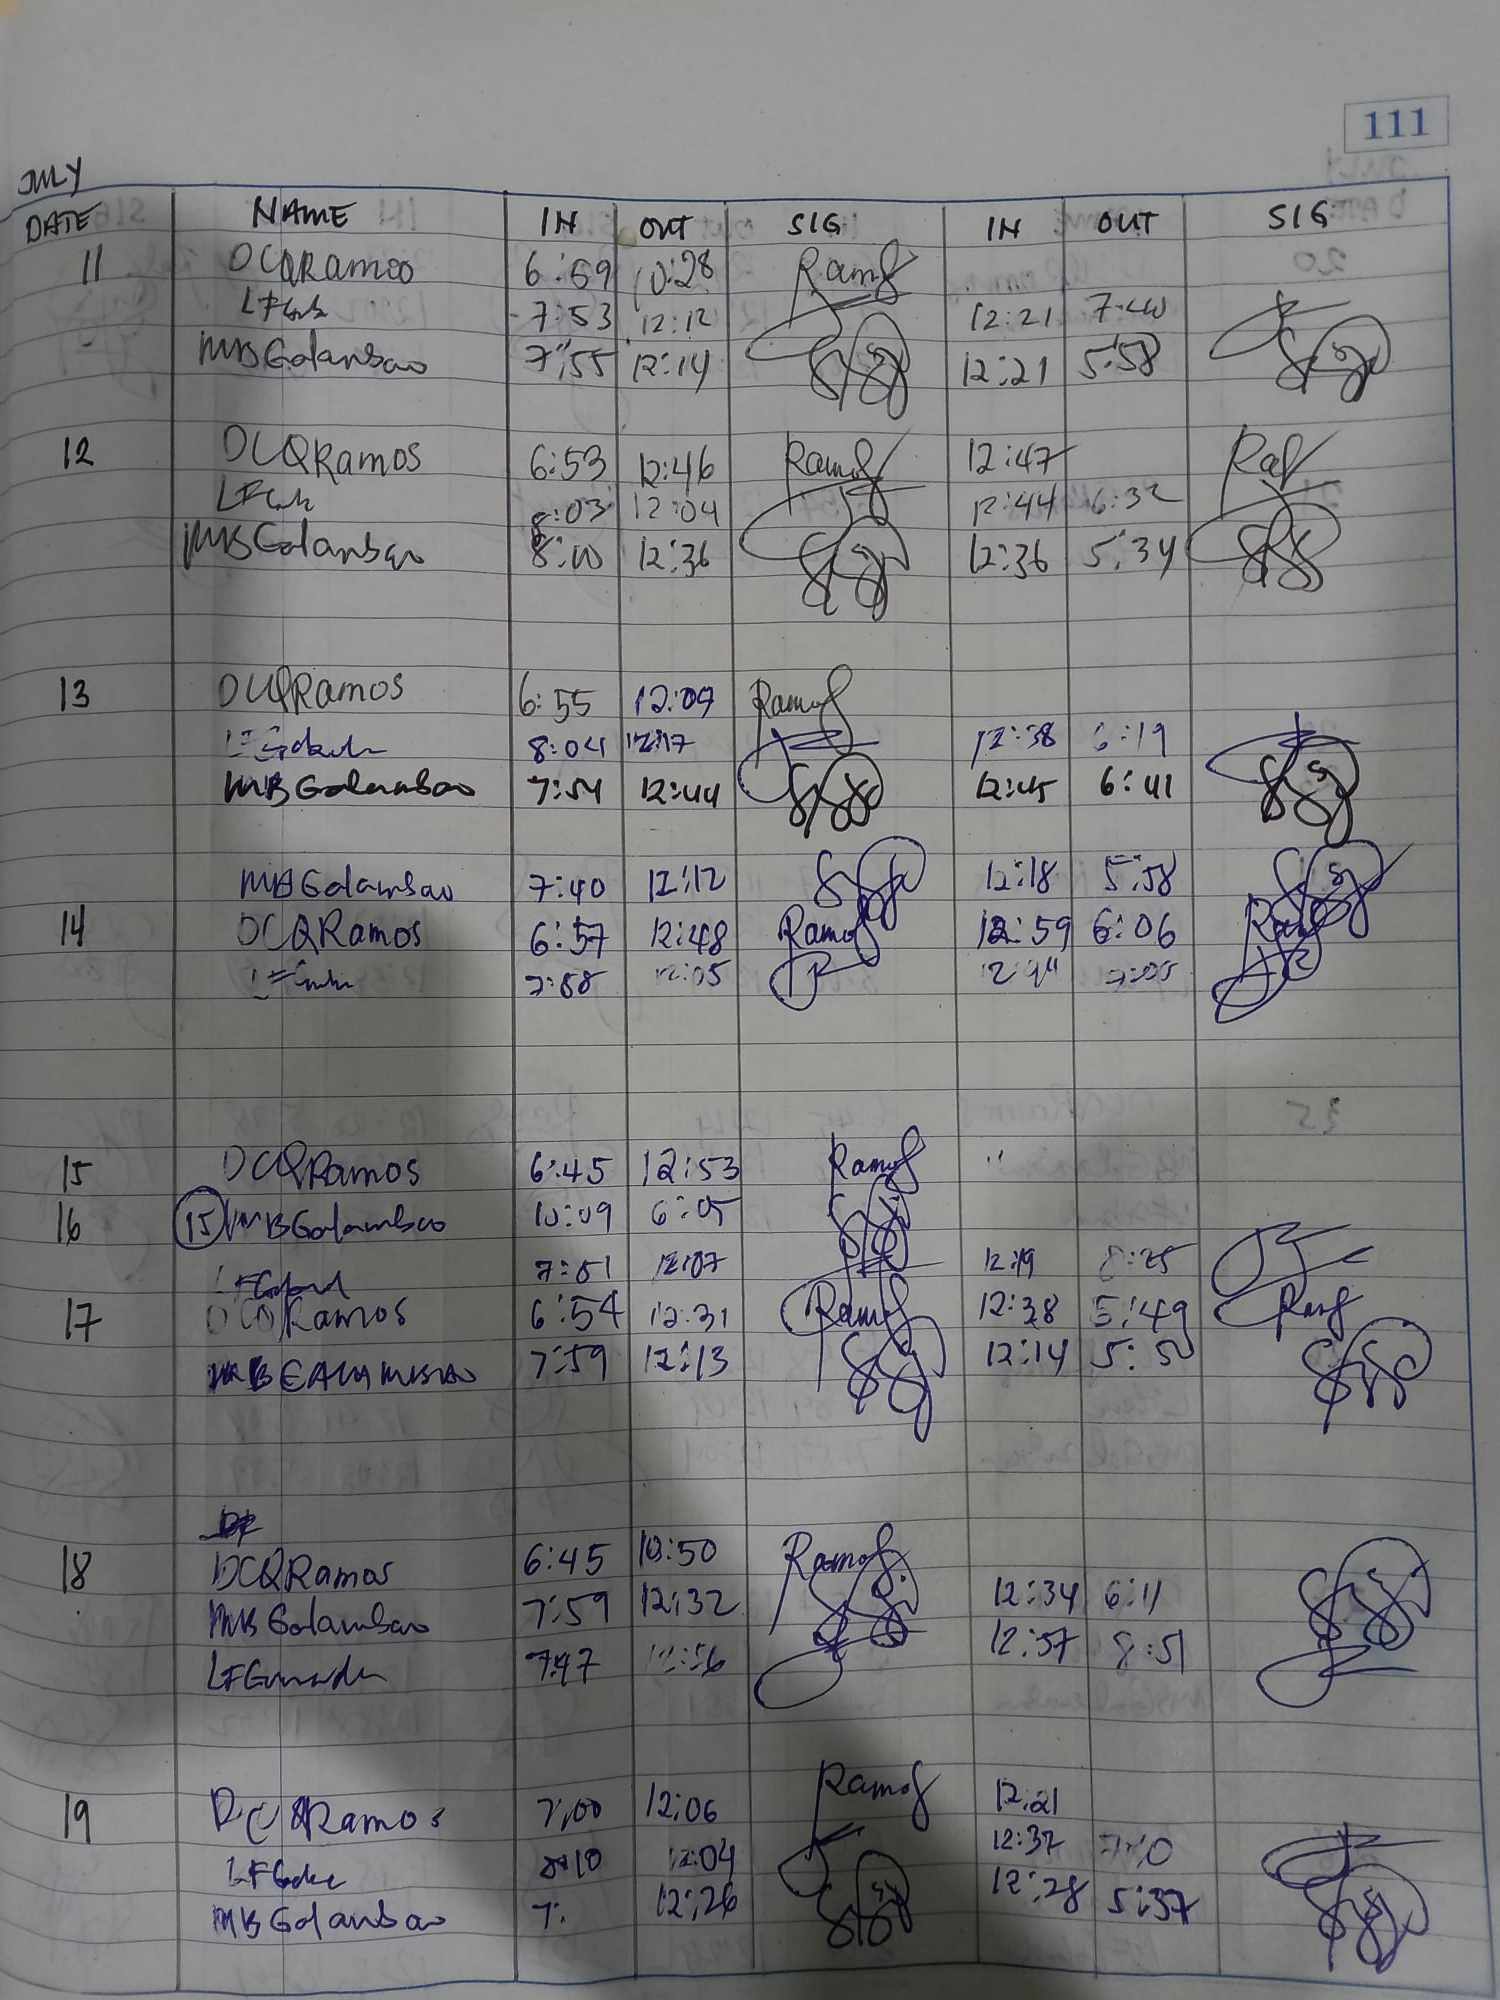 111
JULY
DATE NAME IN OUT SIG IN OUT SIG
11 DCQRamos 6:59 10:28 Ramos
7:53 12:12 12:21 7:40
MBGalambao 7:55 12:14 12:21 5:58
12 DCQRamos 6:53 12:46 Ramos 12:47
8:03 12:04 12:44 6:32
MBGalambao 8:00 12:36 12:36 5:34
13 DCQRamos 6:55 12:09 Ramos
8:04 12:17 12:38 6:19
MBGalambao 7:54 12:44 12:45 6:41
MBGalambao 7:40 12:12 12:18 5:58
14 DCQRamos 6:57 12:48 Ramos 12:59 6:06
7:58 12:05 7:05
15 DCQRamos 6:45 12:53 Ramos "
16 15 MBGalambao 10:09 6:05
7:51 12:07 12:19 8:25
17 DCQRamos 6:54 12:31 Ramos 12:38 5:49
7:59 12:13 12:14 5:50
18 DCQRamos 6:45 10:50 Ramos
MBGalambao 7:59 12:32 12:34 6:11
7:47 12:56 12:57 8:51
19 DCQRamos 7:00 12:06 Ramos 12:21
12:04 12:37
MBGalambao 7: 12:26 12:28 5:37